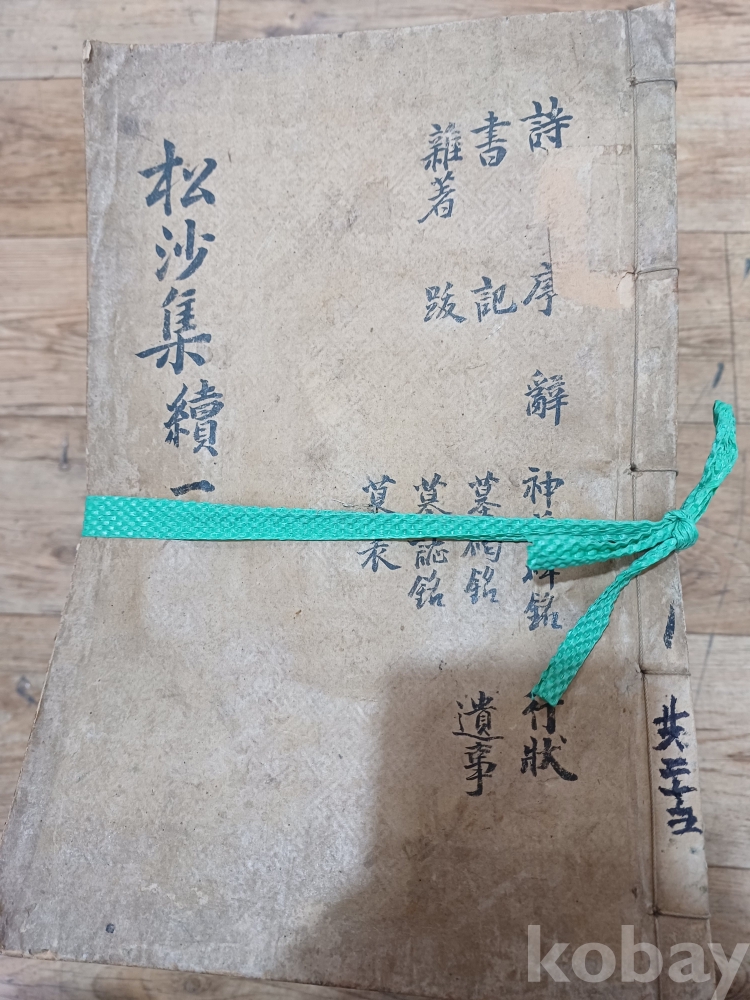 詩 序 辭 神道碑銘 行狀
書 記 墓碣銘 遺事
雜著 跋 墓誌銘
墓表
松沙集續一
共二十五
kobay